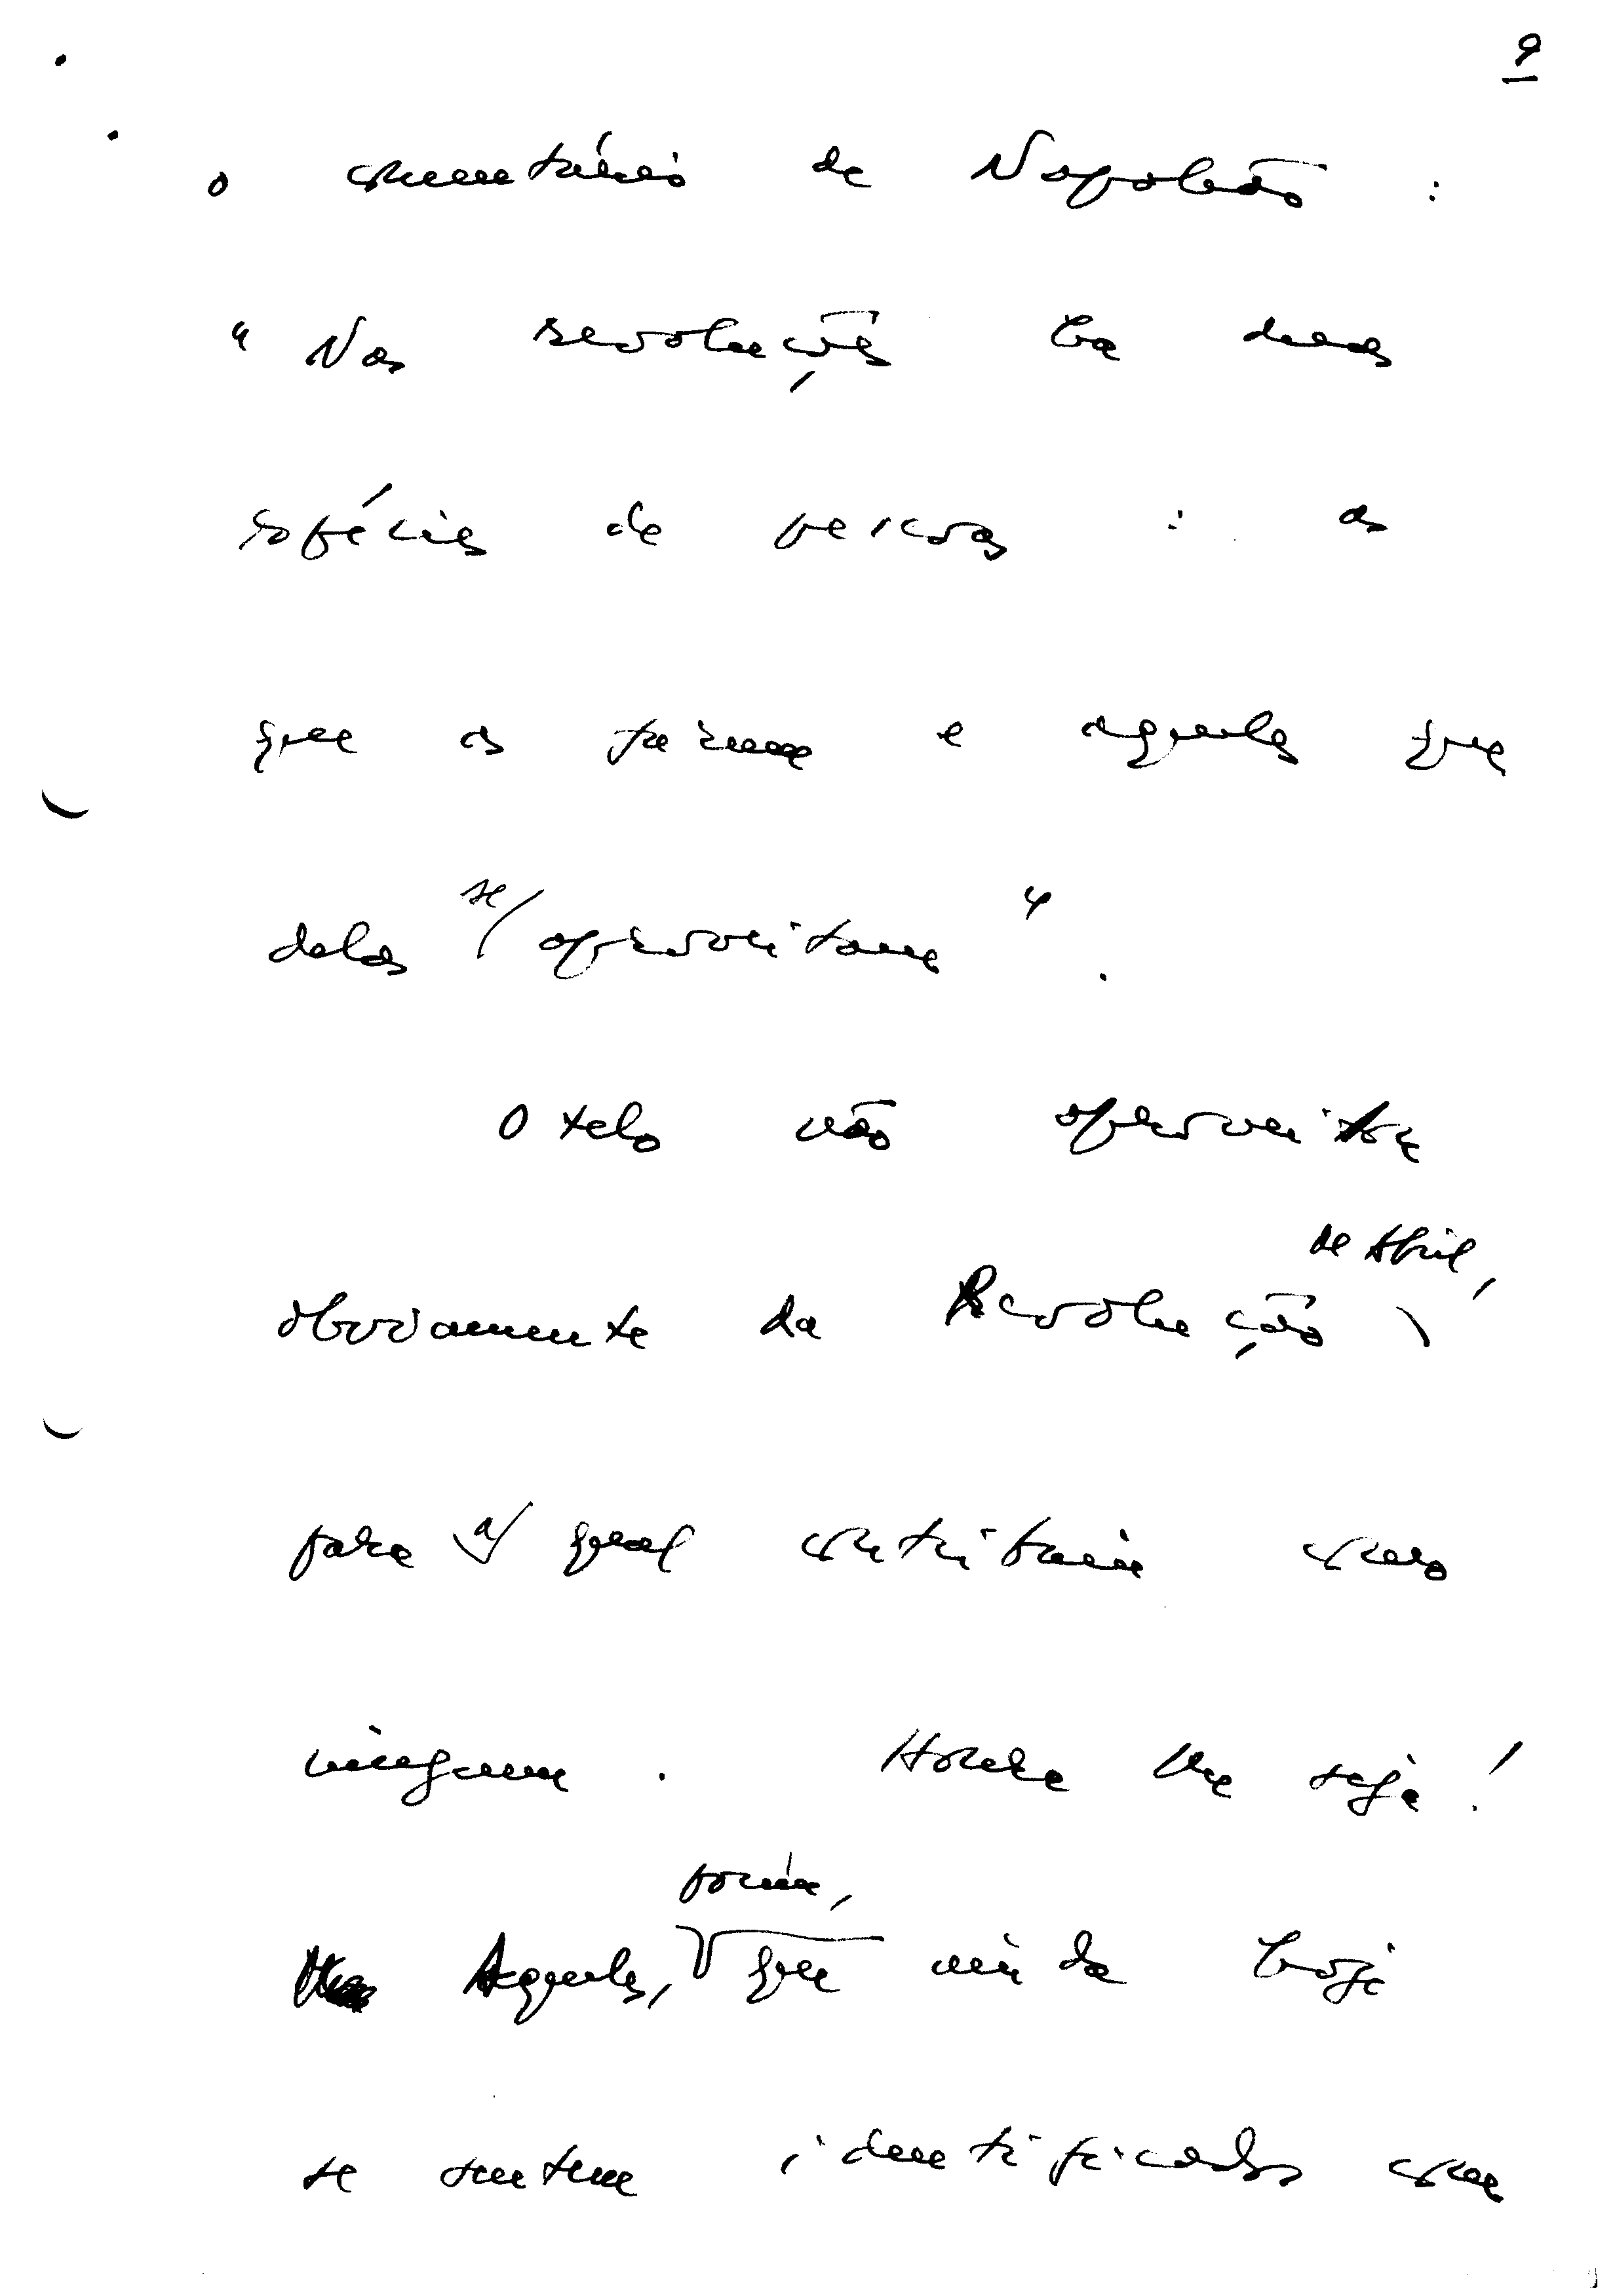 9
o comentário de Napoleão :
" Nas revoluções há duas
espécies de pessoas : as
que as fazem e aqueles que
delas se aproveitam " .
Otelo não aproveitou
de Abril,
obviamente da Revolução
para a qual contribuiu como
ninguém . Honra lhe seja !
porém,
Aqueles, que ainda hoje
se sentem identificados com